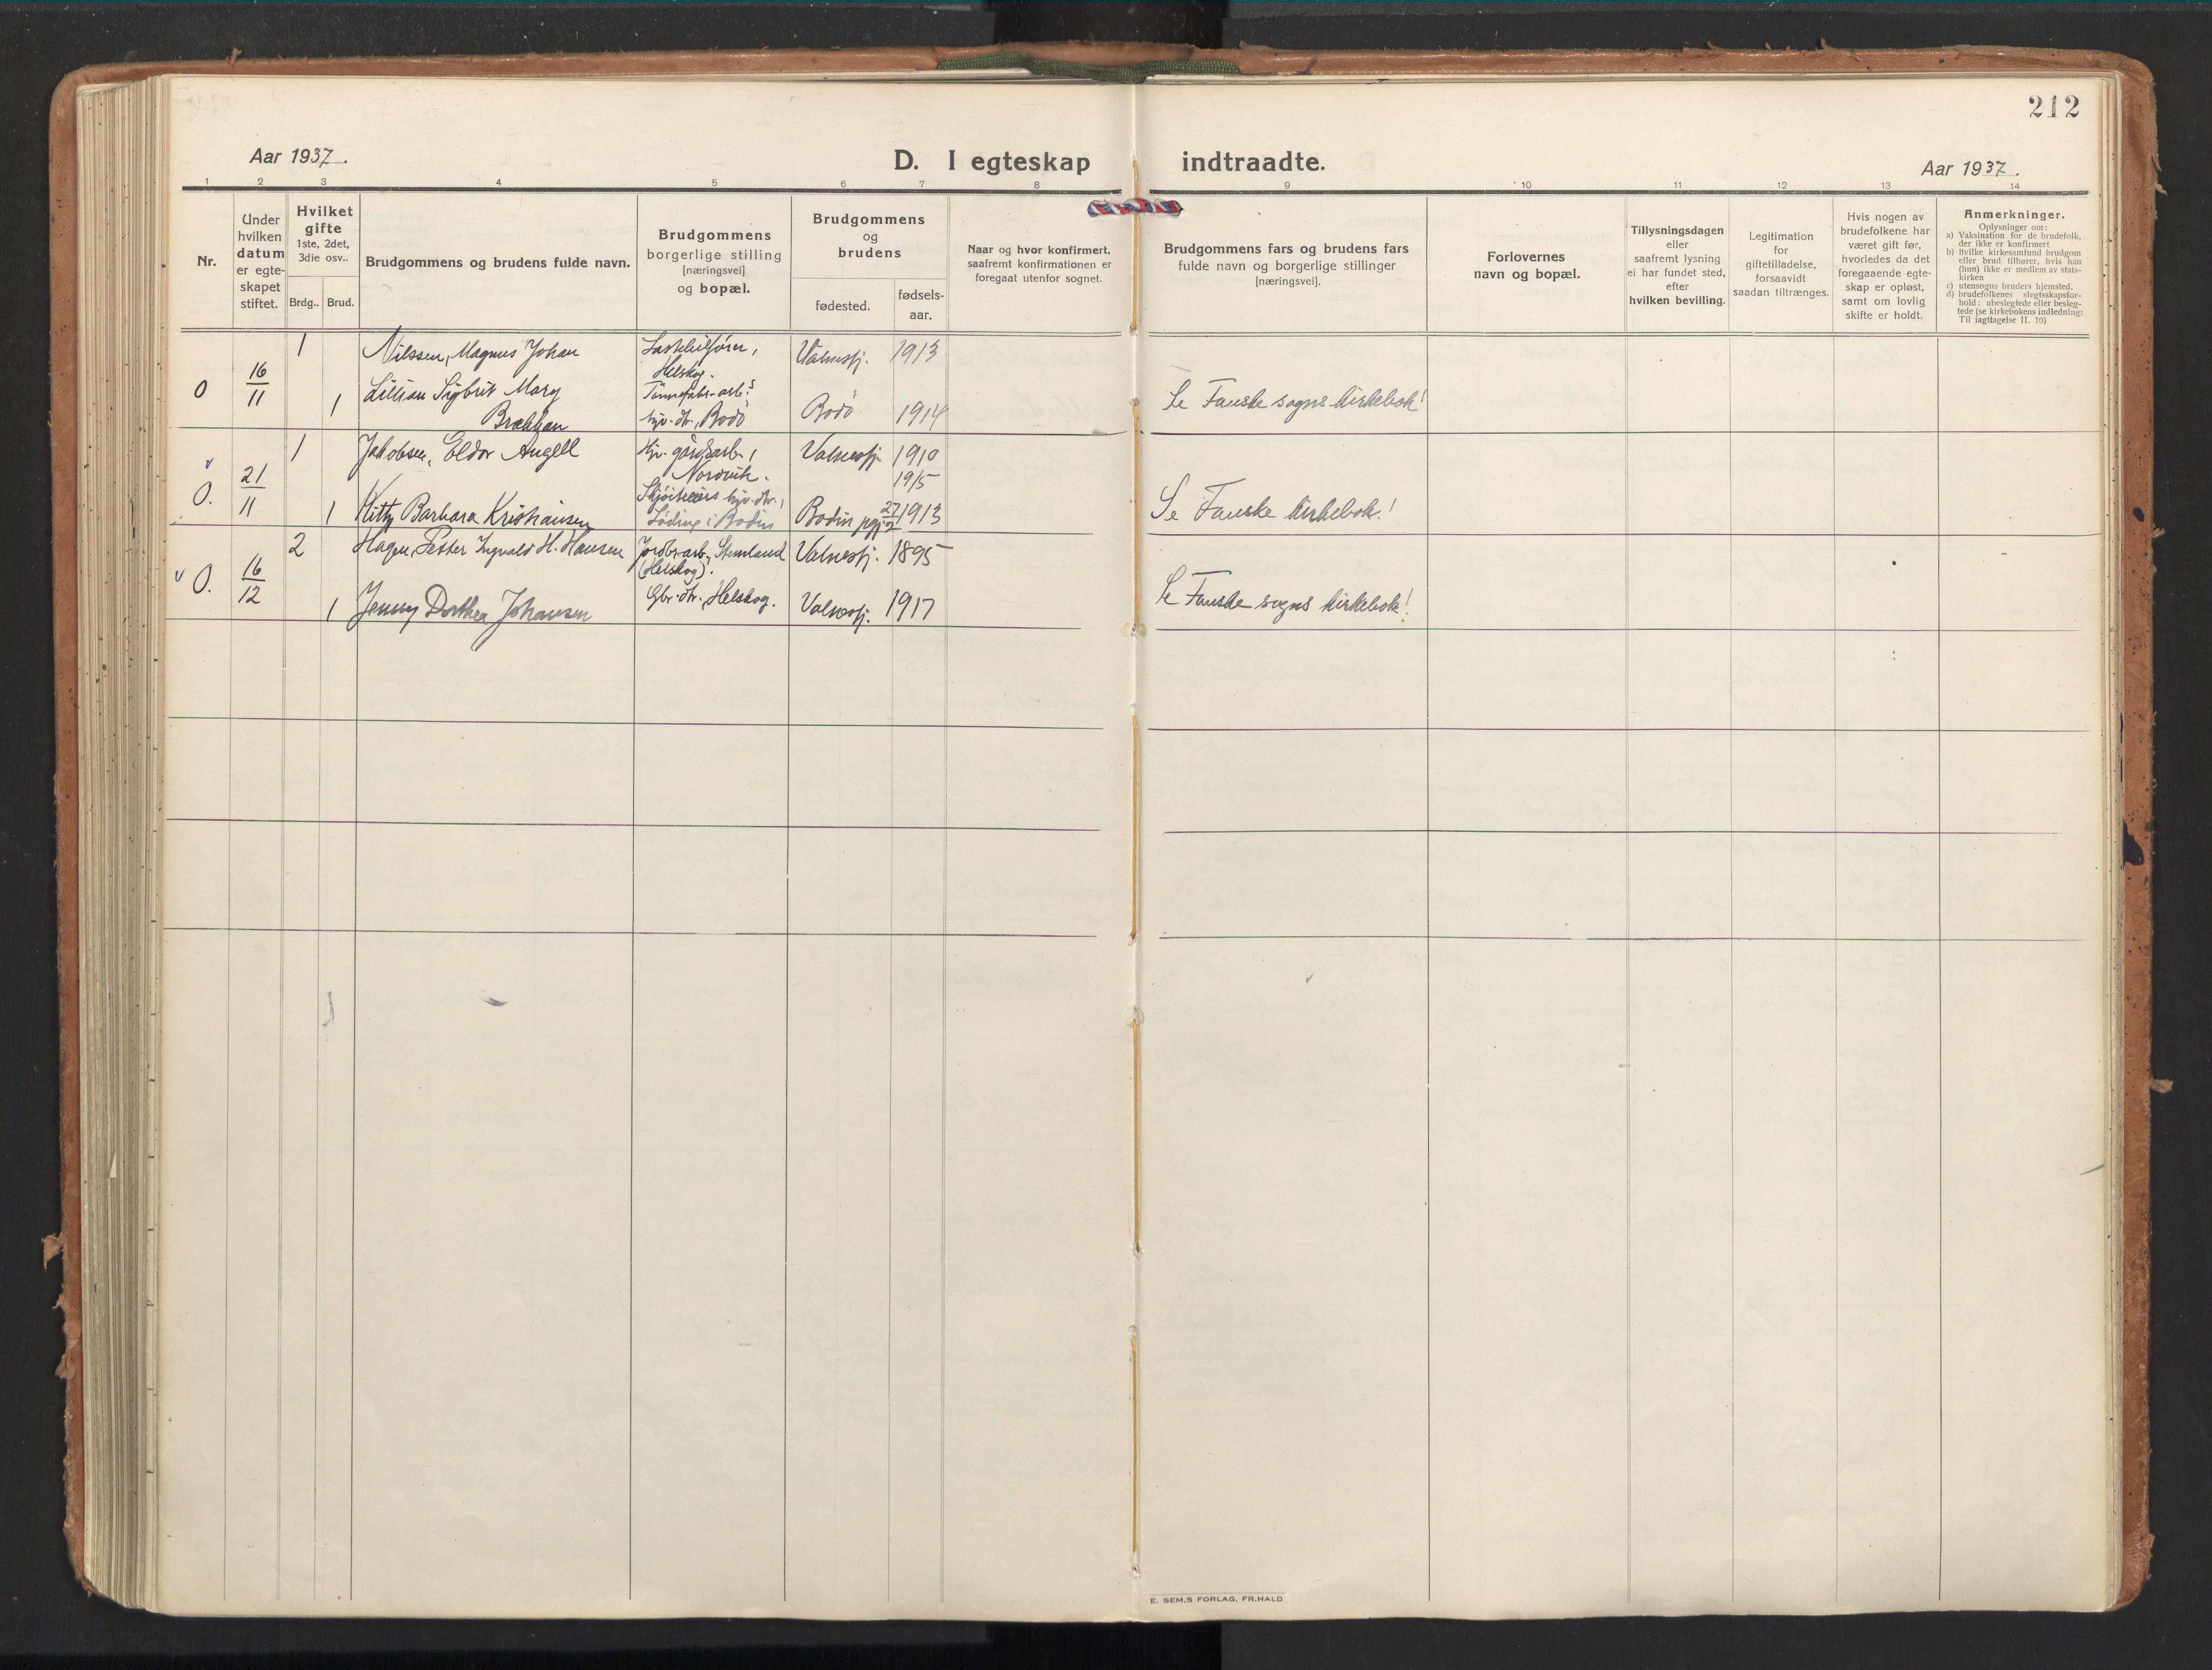 212
Aar 1937.
D. I egteskap indtraadte.
Aar 1937.
1 2 3 4 5 6 7 8 9 10 11 12 13 14
Nr.
Under
hvilken
datum
er egte-
skapet
stiftet.
Hvilket
gifte
1ste, 2det,
3die osv..
Brdg.. Brud.
Brudgommens og brudens fulde navn.
Brudgommens
borgerlige stilling
[næringsvei]
og bopæl.
Brudgommens
og
brudens
fødested.
fødsels-
aar.
Naar og hvor konfirmert,
saafremt konfirmationen er
foregaat utenfor sognet.
Brudgommens fars og brudens fars
fulde navn og borgerlige stillinger
[næringsvei].
Forlovernes
navn og bopæl.
Tillysningsdagen
eller
saafremt lysning
ei har fundet sted,
efter
hvilken bevilling.
Legitimation
for
giftetilladelse,
forsaavidt
saadan tiltrænges.
Hvis nogen av
brudefolkene har
været gift før,
hvorledes da det
foregaaende egte-
skap er opløst,
samt om lovlig
skifte er holdt.
Anmerkninger.
Oplysninger om:
a) Vaksination for de brudefolk,
der ikke er konfirmert
b) hvilke kirkesamfund brudgom
eller brud tilhører, hvis han
(hun) ikke er medlem av stats-
kirken
c) utensogns bruders hjemsted.
d) brudefolkenes slegtsskapsfor-
hold: ubeslegtede eller besleg-
tede (se kirkebokens indledning:
Til iagttagelse II. 10)
0 16/11
1 Nilssen, Magnus Johan
Lastebilfører,
Helskog.
Valnesfj. 1913
1 Lillian Sigbrit Mary
Brækkan
Tønnefabr-arb.s
hjv. dtr., Bodø
Bodø 1914
Se Fauske sogns kirkebok!
0. 21/11
1 Jakobsen, Eldor Angell
Hjv. gårdsarb.,
Nordvik.
Valnesfj. 1910
1915
1 Kitty Barbara Kristiansen
hjv. dtr.,
Løding i Bodin
Bodin pgj. 27/2 1913
Se Fauske kirkebok!
0. 16/12
2 Hagen, Petter Ingvald H. Hansen
Jordbr-arb., Stemland
(Helskog).
Valnesfj. 1895
1 Jenny Dorthea Johansen
Gbr. dtr., Helskog.
Valnesfj. 1917
Se Fauske sogns kirkebok!
E. SEM,S FORLAG, FR.HALD